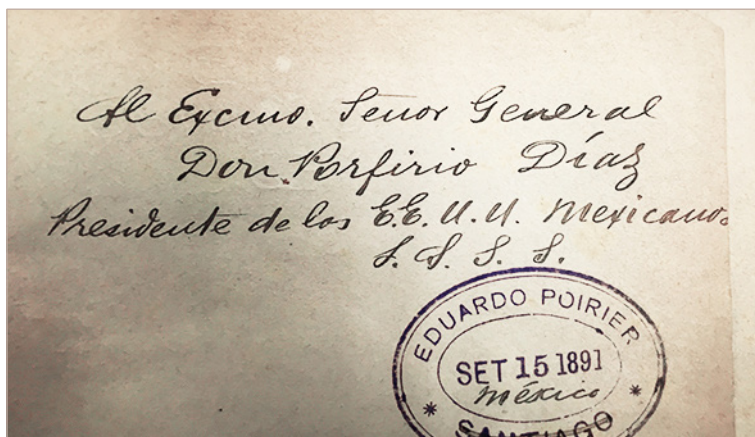 Al Excmo. Señor General
Don Porfirio Díaz
Presidente de los E.E. U.U. Mexicanos
S. S. S. S.
EDUARDO POIRIER
SET 15 1891
México
SANTIAGO